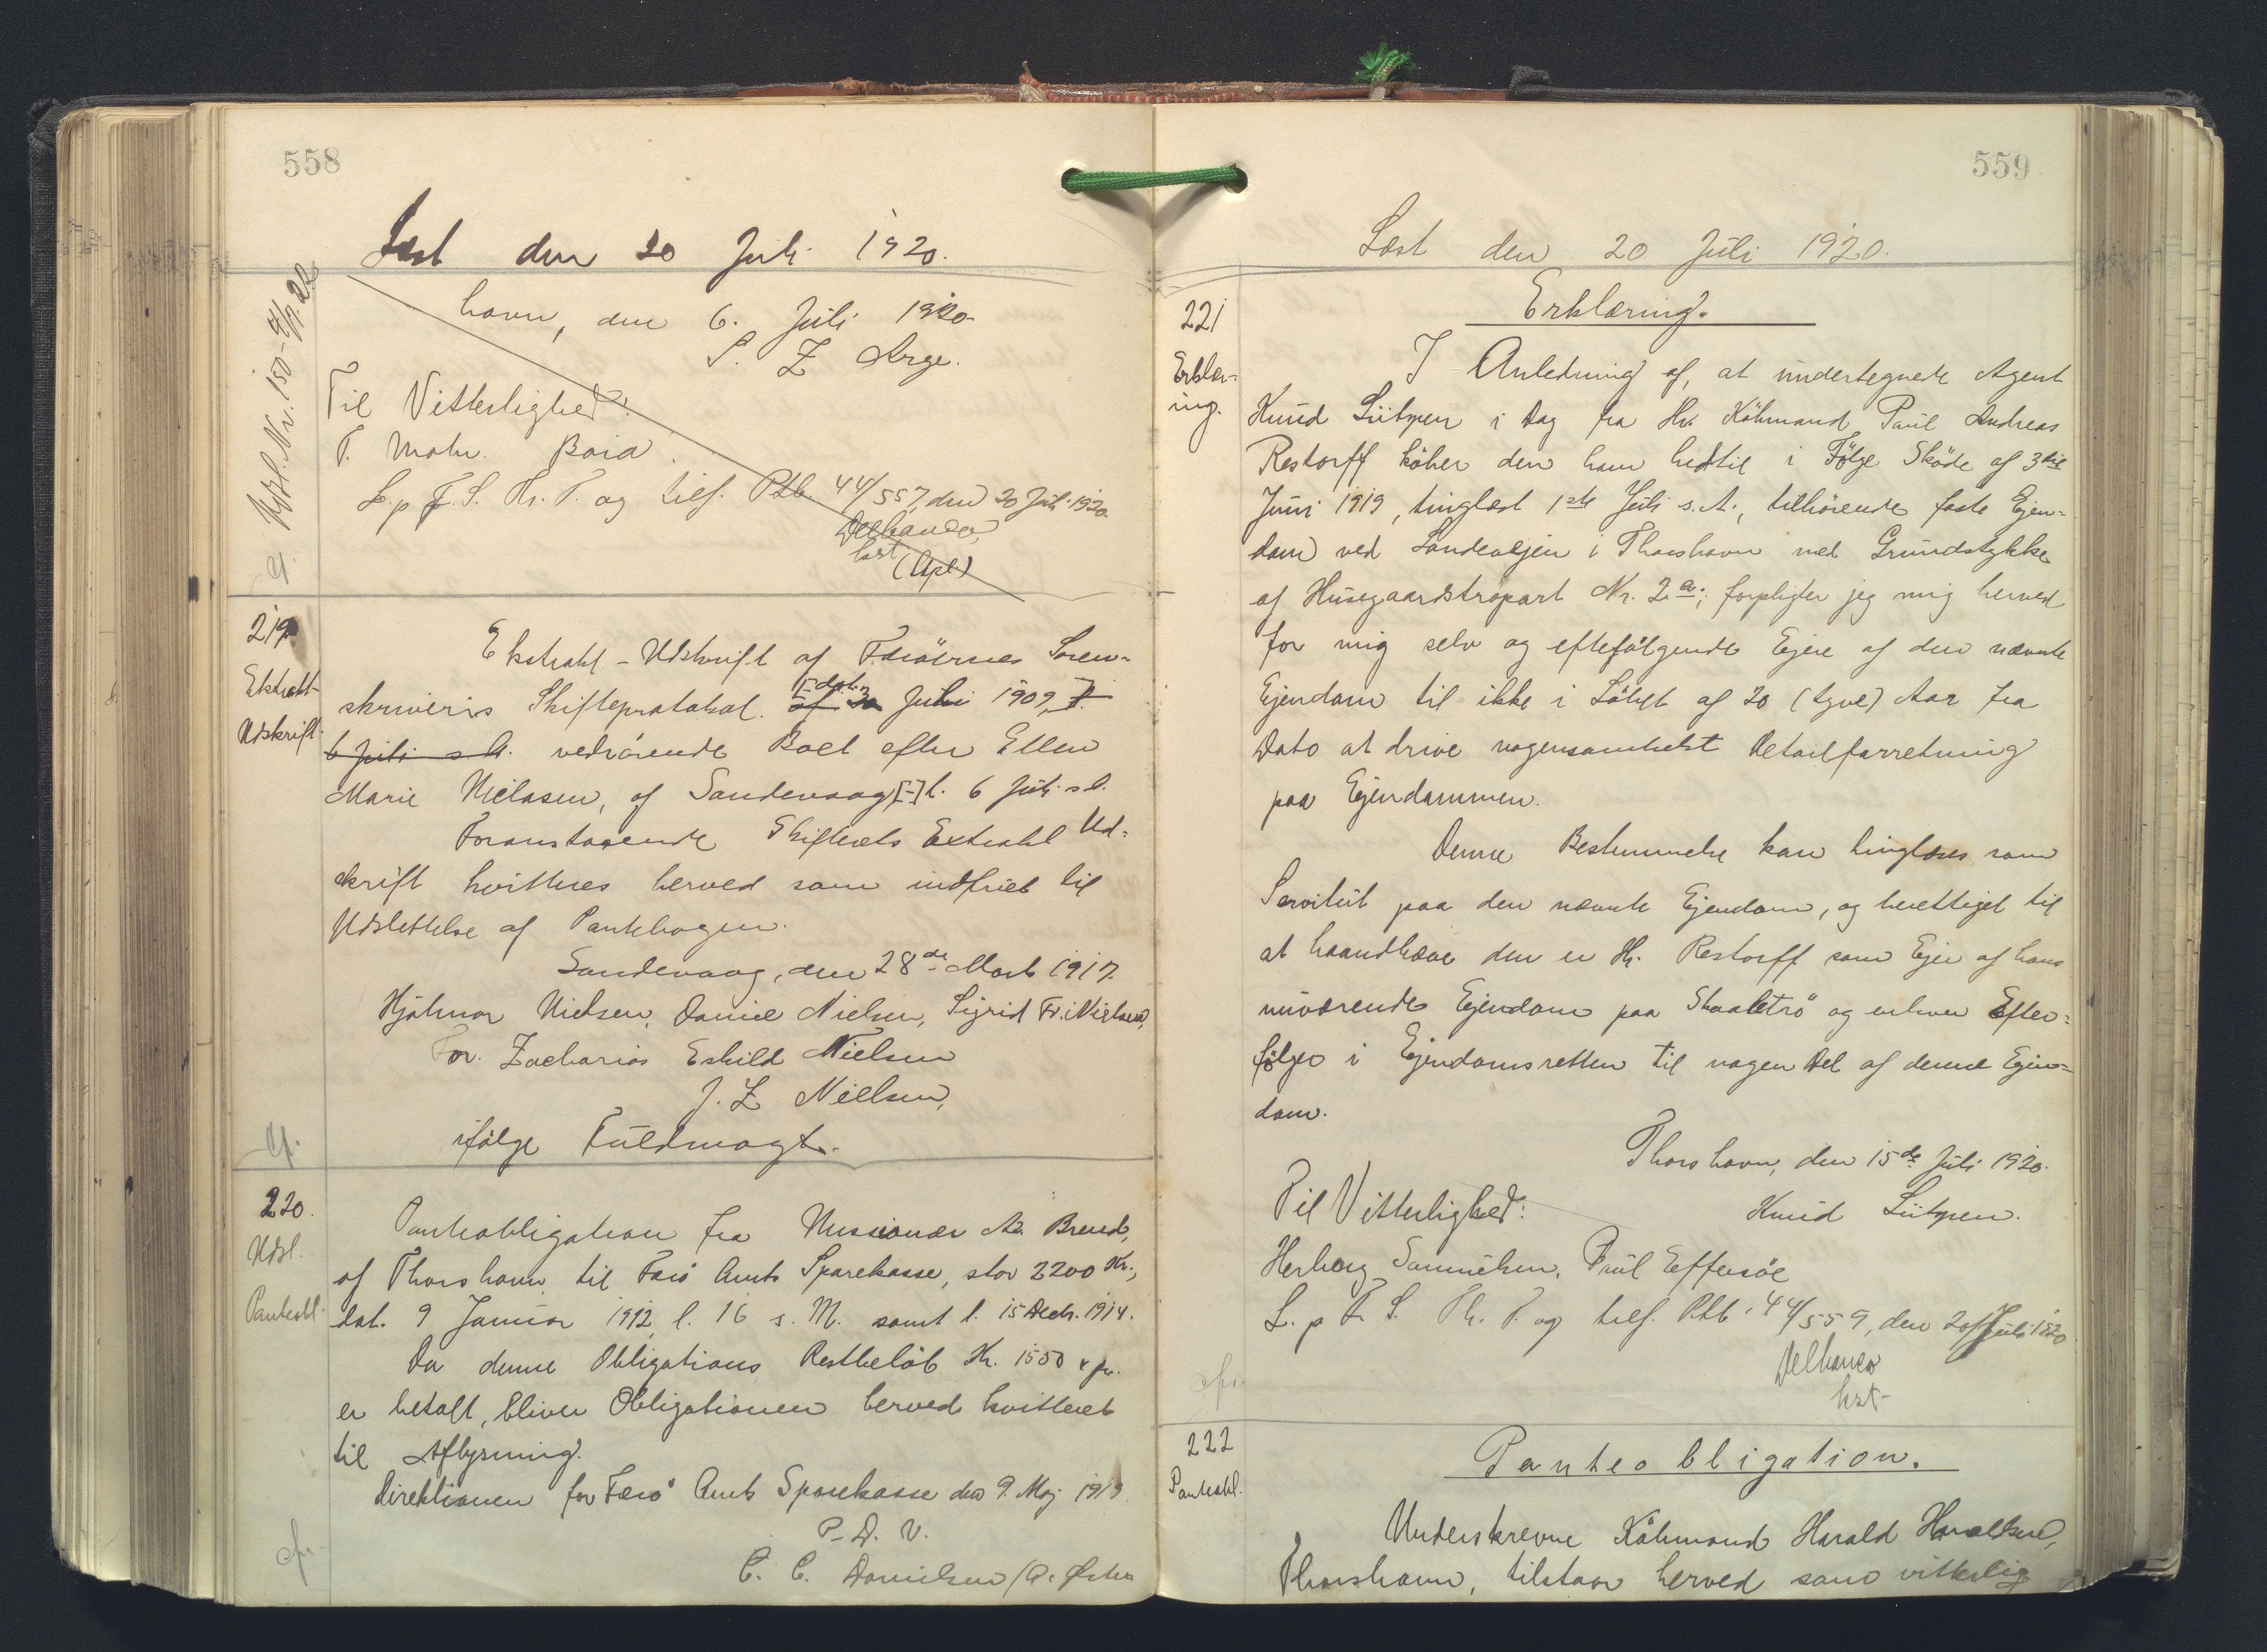 558
Læst den 20 Juli 1920.
Udsl. Nr. 150-4/7 22
havn, den 6. Juli 1920.
S. Z Arge.
Til Vitterlighed:
T. Mohr. Boia.
L. p F. S. Th. T. og tilf. Ptb. 44/557, den 20 Juli 1920.
Delbanco
kst
(Apl)
219
Ekstrakt-
Udskrift.
Ekstrakt-Udskrift af Færöernes Soren-
skriveris Skifteprotokol. af 30 [dat. Juli 1909, l.
6 Juli s A. vedrörende Boet efter Ellen
Marie Nielsen, af Sandevaag [-] l. 6 Juli s. A.
Foranstaaende Skifterets Extrakt Ud-
skrift kvitteres herved som indfriet til
Udslettelse af Pantebogen.
Sandevaag, den 28de Marts 1917.
Hjalmar Nielsen, Daniel Nielsen, Sigrid Fr. Nielsen,
For. Zacharias Eskild Nielsen
J. Z Nielsen,
ifölge Fuldmagt.
220.
Udsl.
Panteobl.
Panteobligation fra Missionær A. Brend,
af Thorshavn til Færö Amts Sparekasse, stor 2200 Kr.,
dat. 9 Januar 1912, l. 16 s. M. samt l. 15 Decbr. 1914.
Da denne Obligations Restbelöb Kr. 1550
er betalt, bliver Obligationen herved kvitteret
til Aflysning.
Direktionen for Færö Amts Sparekasse den 9. Maj 1919.
P. D. V.
C. C. Danielsen /A.
559
Læst den 20 Juli 1920.
221
Erklær-
ing.
Erklæring.
I Anledning af, at undertegnede Agent
Knud Lützen i Dag fra Hr. Köbmand Paul Andreas
Restorff köber den ham hidtil i Fölge Sköde af 3die
Juni 1919, tinglæst 1ste Juli s. A., tilhörende faste Ejen-
dom ved Landevejen i Thorshavn med Grundstykke
af Husegaardstropart Nr. 2a; forpligter jeg mig herved
for mig selv og efterfölgende Ejere af den nævnte
Ejendom til ikke i Löbet af 20 (tyve) Aar fra
Dato at drive nogensomhelst Detailforretning
paa Ejendommen.
Denne Bestemmelse kan tinglæses som
Servitut paa den nævnte Ejendom, og berettiget til
at haandhæve den er Hr. Restorff som Ejer af hans
nuværende Ejendom paa Skaaletrö og enhver Efter-
fölger i Ejendomsretten til nogen Del af denne Ejen-
dom.
Thorshavn, den 15de Juli 1920.
Til Vitterlighed:
Knud Lützen.
Herborg Samuelsen. Poul Effersöe
L. p F. S. Th. T. og tilf. Ptb. 44/559, den 20 Juli 1920
Delbanco
kst-
222
Panteobl.
Panteobligation.
Underskrevne Köbmand Harald Haraldsen,
Thorshavn, tilstaar herved som vitterlig